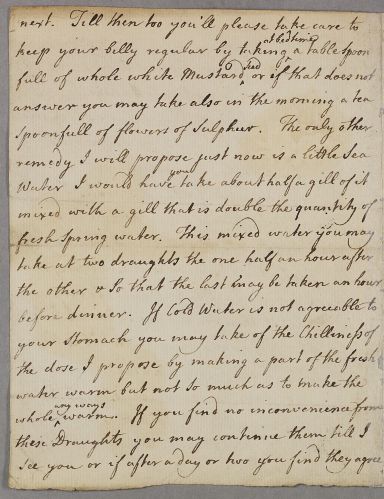 next. Till then too you'll please take care to
keep your belly regular by taking at bedtime a table spoon
full of whole white Mustard Seed or if that does not
answer you may take also in the morning a tea
Spoonfull of flowers of Sulpheer. The only other
remedy I will propose just now is a little Sea
Water I would have you take about half a gill of it
mixed with a gill that is double the quantity of
fresh Spring water. This mixed water you may
take at two draughts the one half an hour after
the other & so that the last may be taken an hour
before dinner. If Cold Water is not agreeable to
your Stomach you may take of the Chilliness of
the dose I propose by making a part of the fresh
water warm but not so much as to make the
whole any ways warm. If you find no inconvenience from
these Draughts you may continue them till I
See you or if after a day or two you find they agree